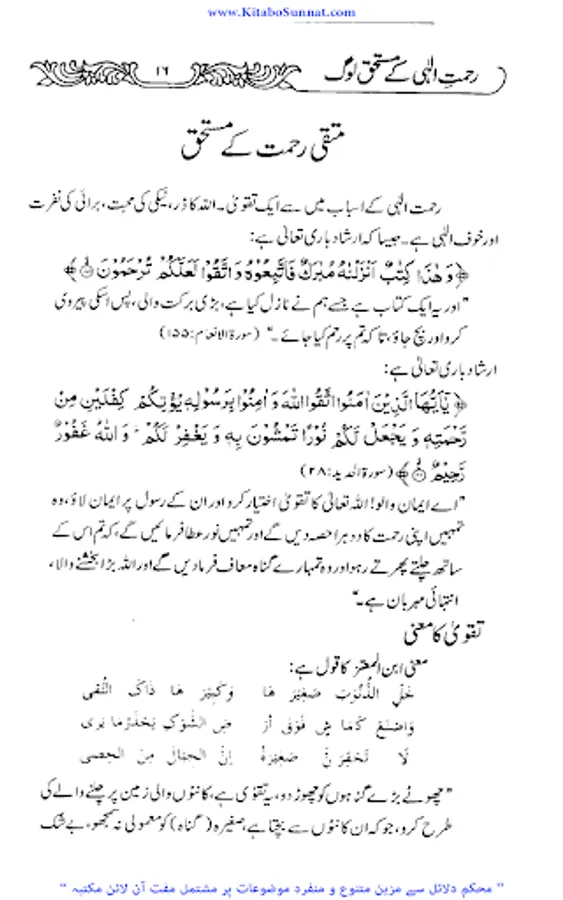 www.KitaboSunnat.com
رحمتِ الٰہی کے مستحق لوگ
۱۶
متقی رحمت کے مستحق
رحمت الٰہی کے اسباب میں سے ایک تقویٰ۔ اللہ کا ڈر، نیکی کی محبت، برائی کی نفرت
اور خوف الٰہی ہے۔ جیسا کہ ارشاد باری تعالیٰ ہے:
﴿وَهٰذَا كِتٰبٌ اَنْزَلْنٰهُ مُبٰرَكٌ فَاتَّبِعُوْهُ وَاتَّقُوْا لَعَلَّكُمْ تُرْحَمُوْنَ﴾
"اور یہ ایک کتاب ہے جسے ہم نے نازل کیا ہے، بڑی برکت والی، پس اسکی پیروی
کرو اور بچ جاؤ، تاکہ تم پر رحم کیا جائے۔" (سورۃ الانعام: ۱۵۵)
ارشاد باری تعالیٰ ہے:
﴿يٰٓاَيُّهَا الَّذِيْنَ اٰمَنُوا اتَّقُوا اللّٰهَ وَاٰمِنُوْا بِرَسُوْلِهٖ يُؤْتِكُمْ كِفْلَيْنِ مِنْ
رَّحْمَتِهٖ وَيَجْعَلْ لَّكُمْ نُوْرًا تَمْشُوْنَ بِهٖ وَيَغْفِرْ لَكُمْ ۭ وَاللّٰهُ غَفُوْرٌ
رَّحِيْمٌ﴾ (سورۃ الحدید: ۲۸)
"اے ایمان والو! اللہ تعالیٰ کا تقویٰ اختیار کرو اور ان کے رسول پر ایمان لاؤ، وہ
تمہیں اپنی رحمت کا دوہرا حصہ دیں گے اور تمہیں نور عطا فرمائیں گے، کہ تم اس کے
ساتھ چلتے پھرتے رہو اور وہ تمہارے گناہ معاف فرما دیں گے اور اللہ بڑا بخشنے والا،
انتہائی مہربان ہے۔"
تقویٰ کا معنی
معنی ابن المعتز کا قول ہے:
خَلِّ الذُّنُوْبَ صَغِيْرَ هَا وَكَبِيْرَ هَا ذَاكَ التُّقٰى
وَاصْنَعْ كَمَاشٍ فَوْقَ اَرْ ضِ الشَّوْكِ يَحْذَرُ مَا يَرٰى
لَا تَحْقِرَنَّ صَغِيْرَةً اِنَّ الْجِبَالَ مِنَ الْحَصٰى
"چھوٹے بڑے گناہوں کو چھوڑ دو، یہ تقویٰ ہے، کانٹوں والی زمین پر چلنے والے کی
طرح کرو، جو کہ ان کانٹوں سے بچتا ہے، صغیرہ (گناہ) کو معمولی نہ سمجھو، بے شک
" محکم دلائل سے مزین متنوع و منفرد موضوعات پر مشتمل مفت آن لائن مکتبہ "